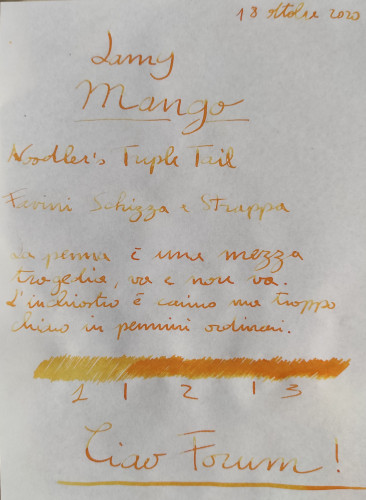 13 ottobre 2020
Lamy
Mango
Noodler's Triple Tail
Favini Schizza e Strappa
La penna è una mezza
tragedia, va e non va.
L'inchiostro è carino ma troppo
chiaro in pennini ordinari.
1 | 2 | 3
Ciao Forum!